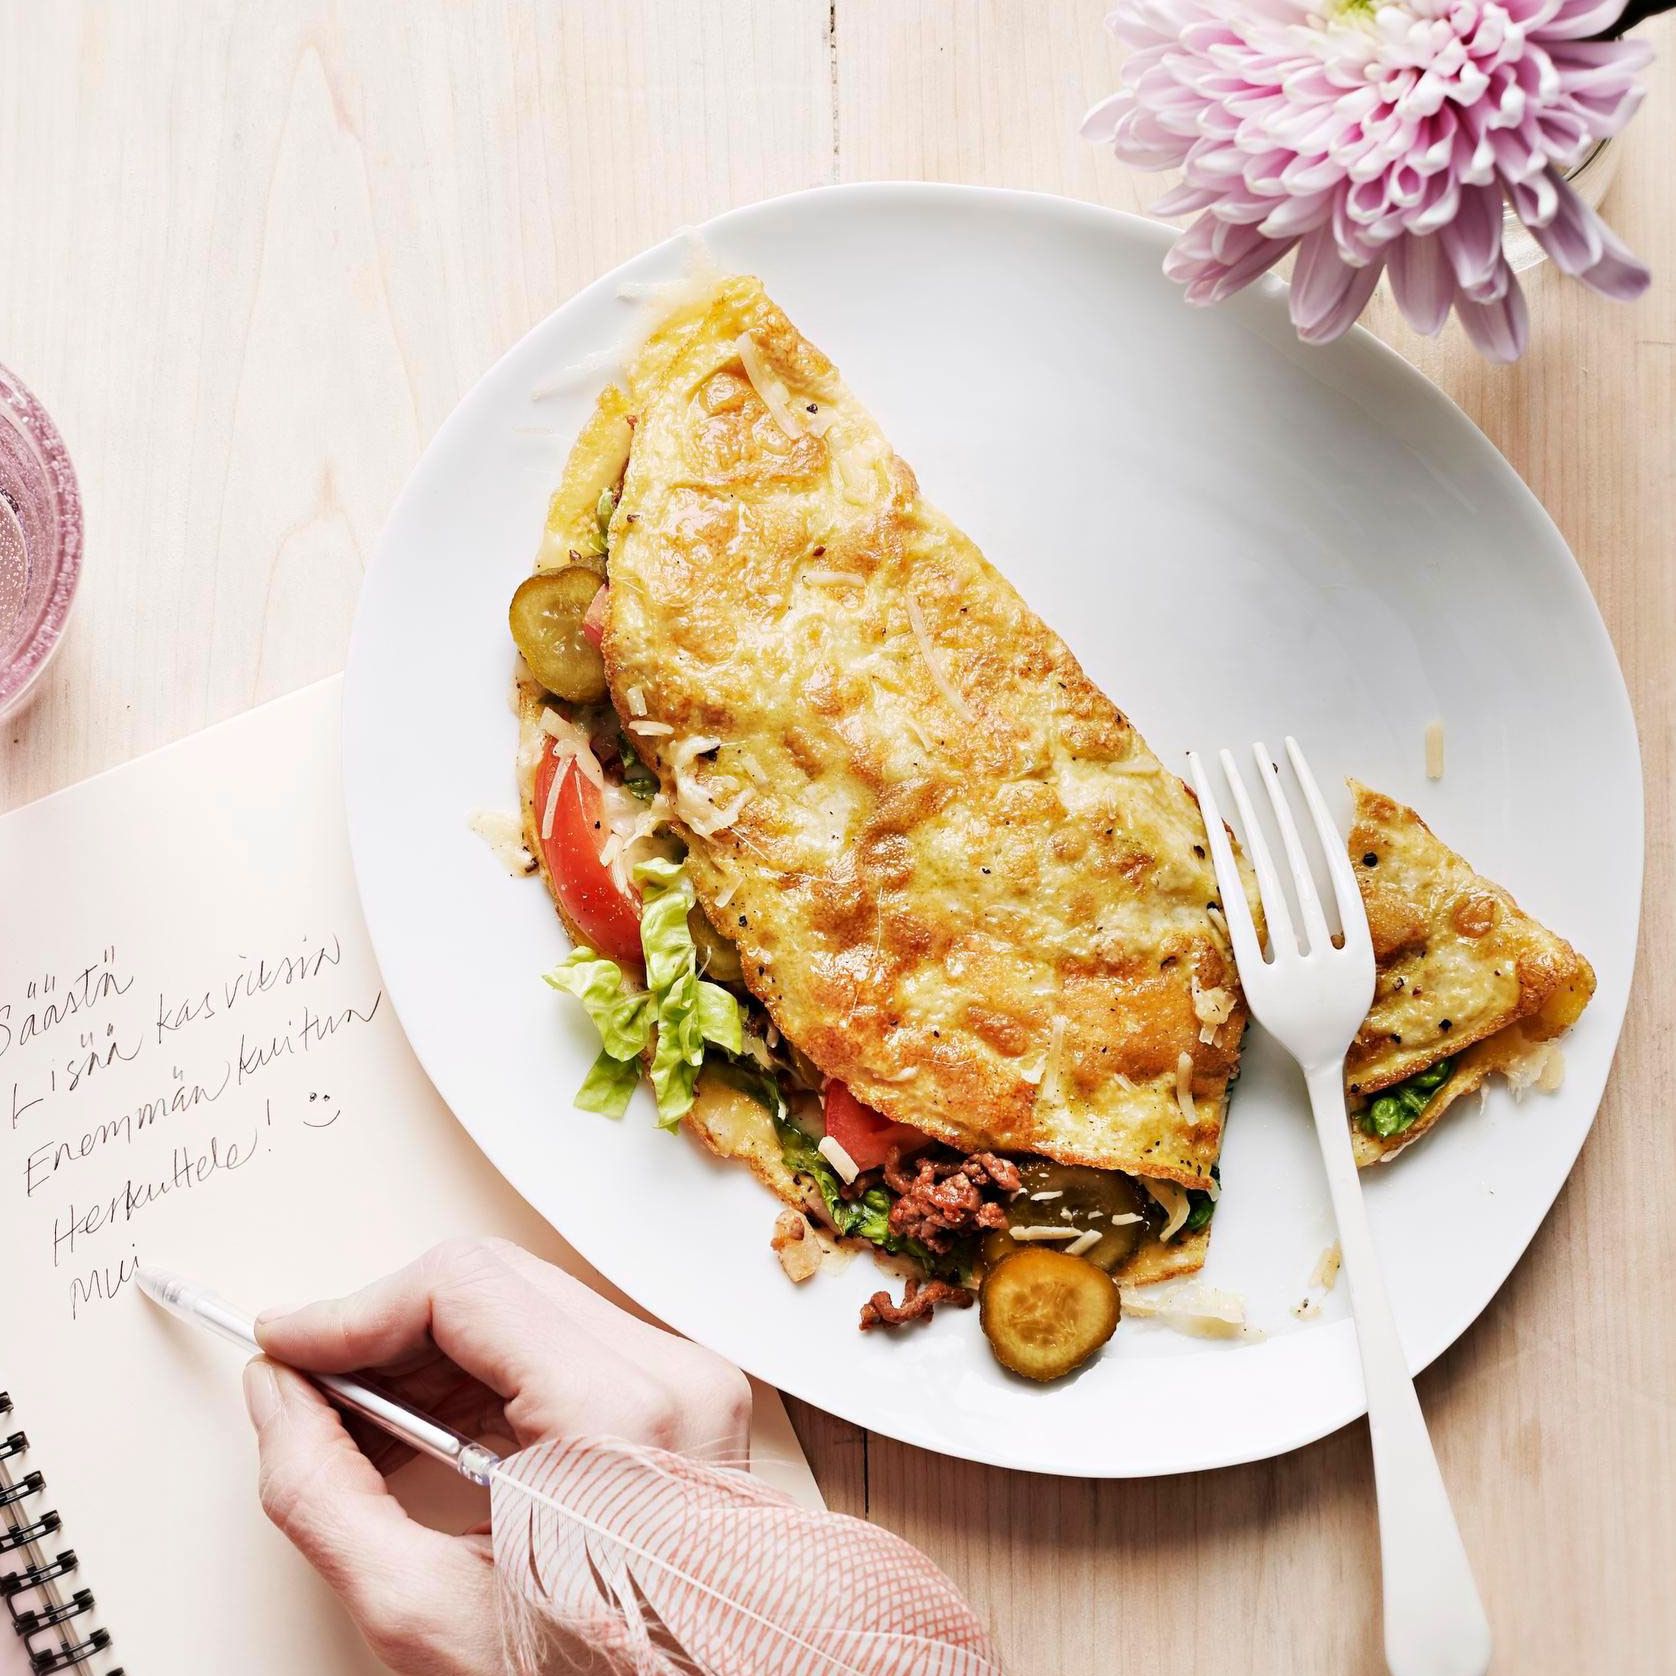 Säästä
Lisää kasviksia
Enemmän kuitua
Herkuttele! :)
Mui